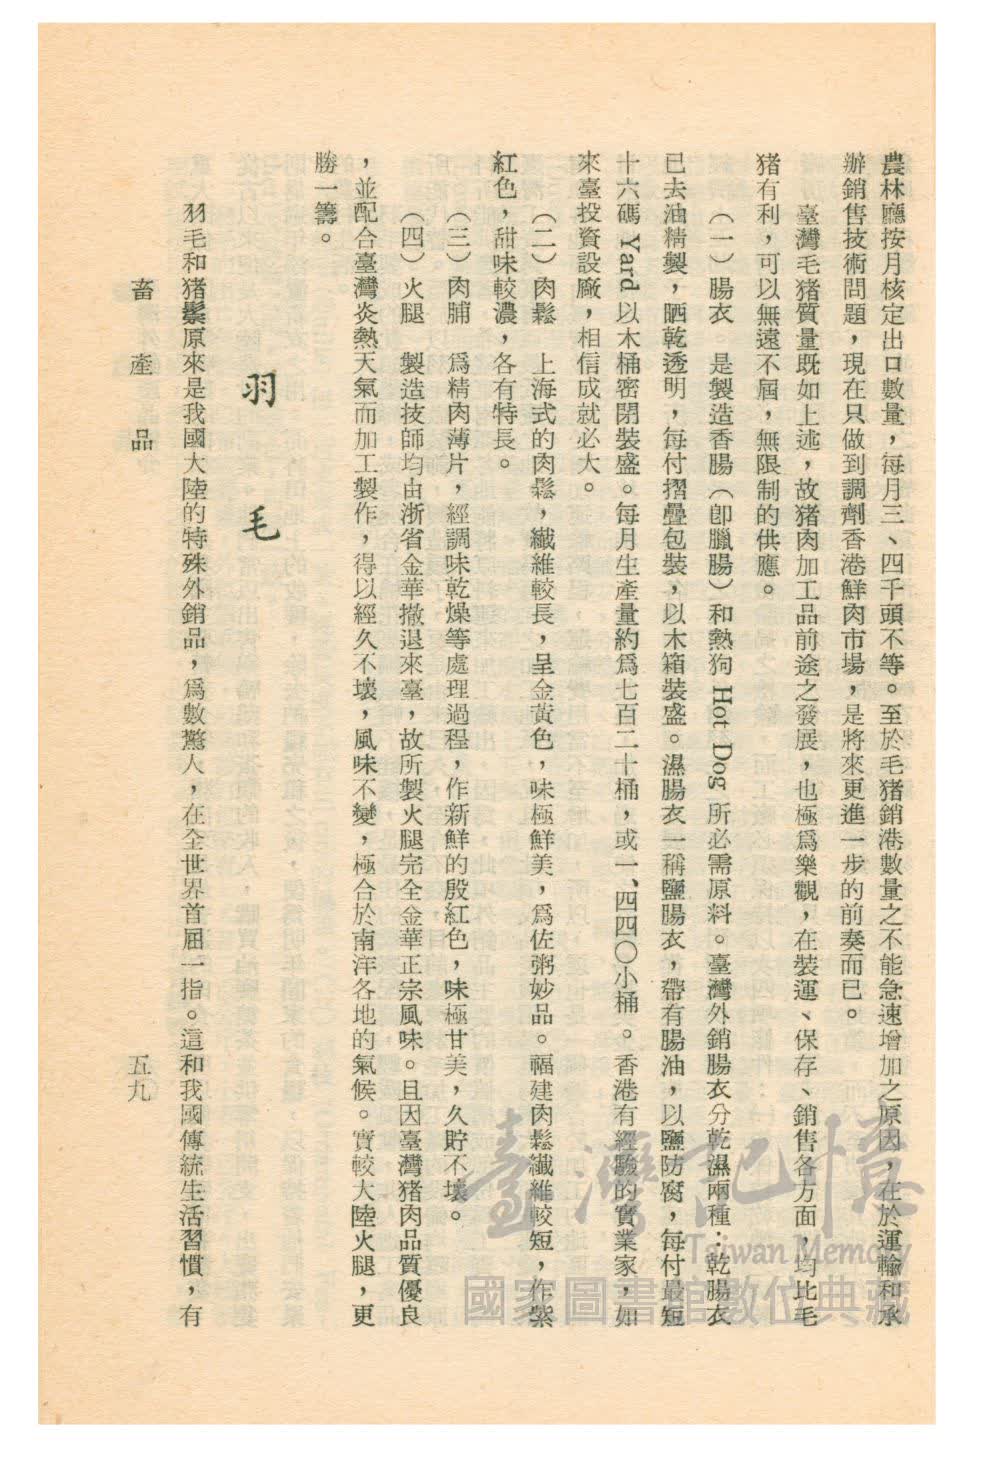 農林廳按月核定出口數量，每月三、四千頭不等。至於毛猪銷港數量之不能急速增加之原因，在於運輸和承
辦銷售技術問題，現在只做到調劑香港鮮肉市場，是將來更進一步的前奏而已。
臺灣毛猪質量既如上述，故猪肉加工品前途之發展，也極爲樂觀，在裝運、保存、銷售各方面，均比毛
猪有利，可以無遠不屆，無限制的供應。
（一）腸衣。是製造香腸（卽臘腸）和熱狗 Hot Dog 所必需原料。臺灣外銷腸衣分乾濕兩種：乾腸衣
已去油精製，晒乾透明，每付摺疊包裝，以木箱裝盛。濕腸衣一稱鹽腸衣，帶有腸油，以鹽防腐，每付最短
十六碼 Yard 以木桶密閉裝盛。每月生產量約爲七百二十桶，或一、四四〇小桶。香港有經驗的實業家，如
來臺投資設廠，相信成就必大。
（二）肉鬆　上海式的肉鬆，纖維較長，呈金黃色，味極鮮美，爲佐粥妙品。福建肉鬆纖維較短，作紫
紅色，甜味較濃，各有特長。
（三）肉脯　爲精肉薄片，經調味乾燥等處理過程，作新鮮的殷紅色，味極甘美，久貯不壞。
（四）火腿　製造技師均由浙省金華撤退來臺，故所製火腿完全金華正宗風味。且因臺灣猪肉品質優良
，並配合臺灣炎熱天氣而加工製作，得以經久不壞，風味不變，極合於南洋各地的氣候。實較大陸火腿，更
勝一籌。
羽毛
羽毛和猪鬃原來是我國大陸的特殊外銷品，爲數驚人，在全世界首屈一指。這和我國傳統生活習慣，有
畜產品　五九
臺灣記憶
Taiwan Memory
國家圖書館數位典藏